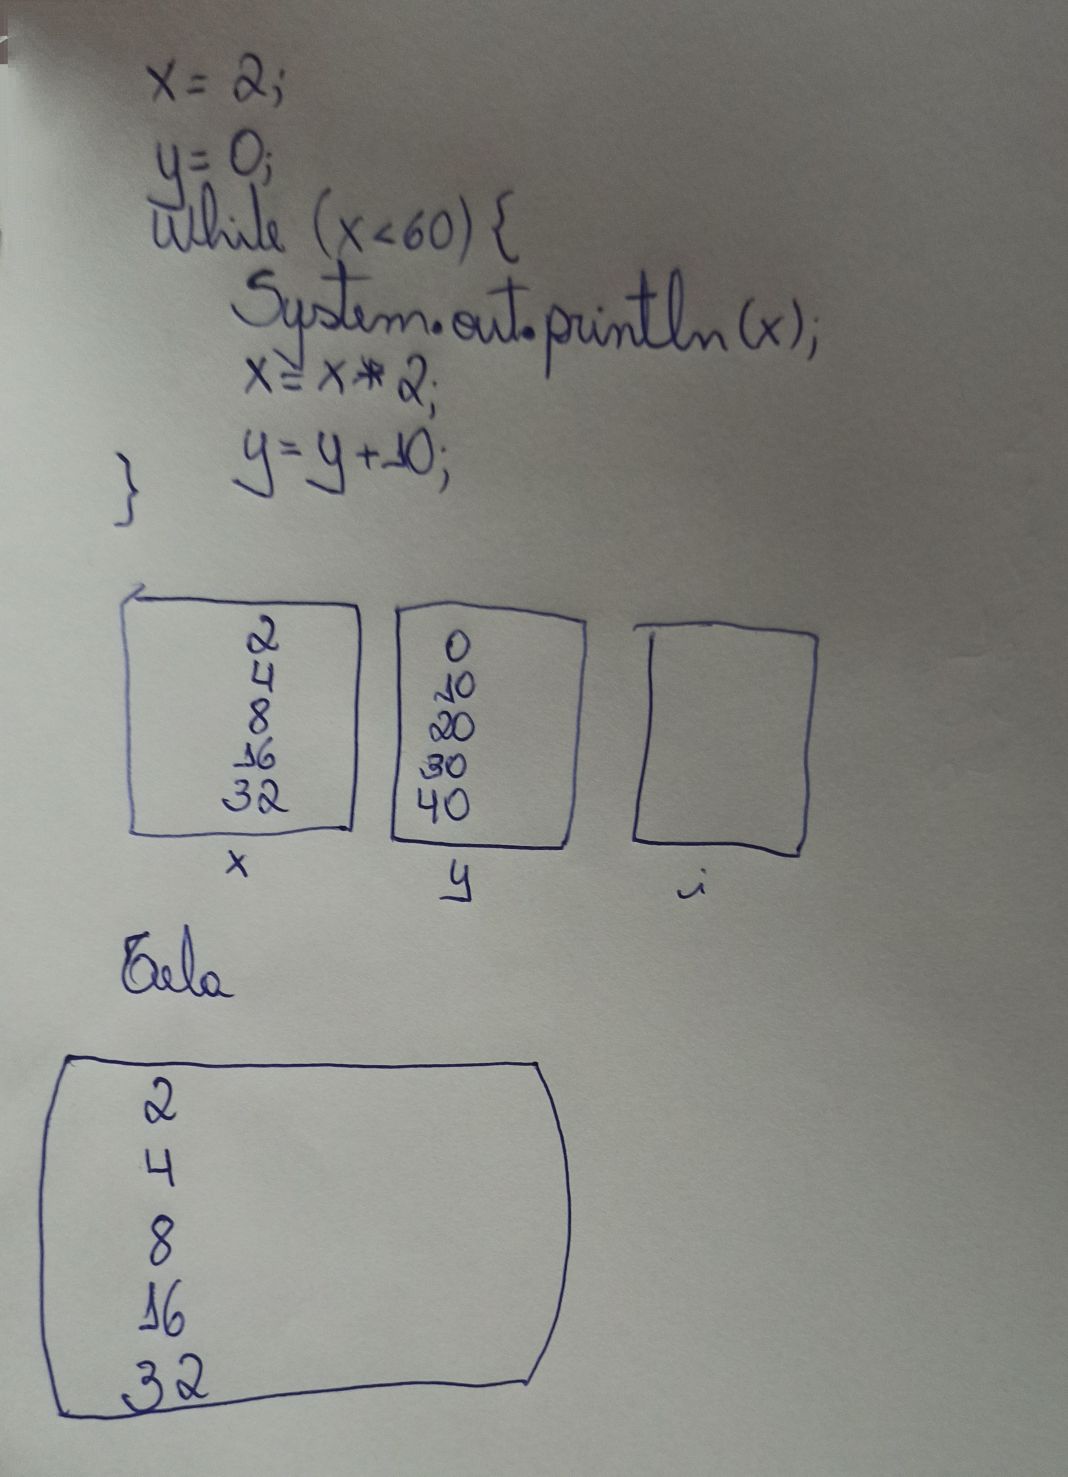 x = 2;
y = 0;
While (x<60) {
System.out.println(x);
x = x * 2;
y = y + 10;
}
2
4
8
16
32
x
0
10
20
30
40
y
i
Tela
2
4
8
16
32